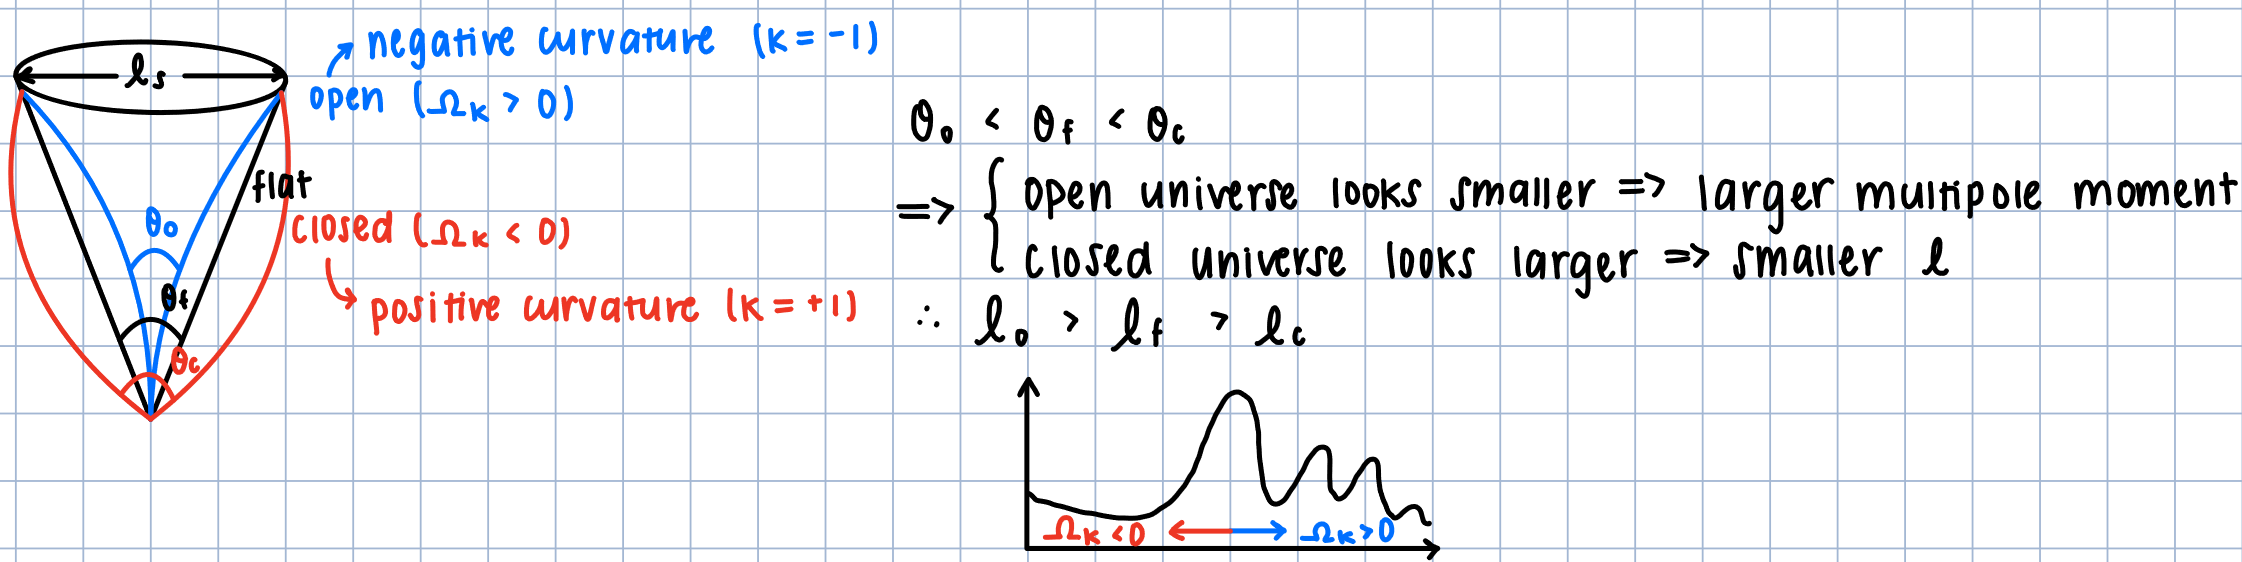 ℓs
negative curvature (k = -1)
open (Ωk > 0)
flat
closed (Ωk < 0)
positive curvature (k = +1)
θo
θf
θc
θo < θf < θc
=> { open universe looks smaller => larger multipole moment
closed universe looks larger => smaller ℓ
∴ ℓo > ℓf > ℓc
Ωk < 0 Ωk > 0